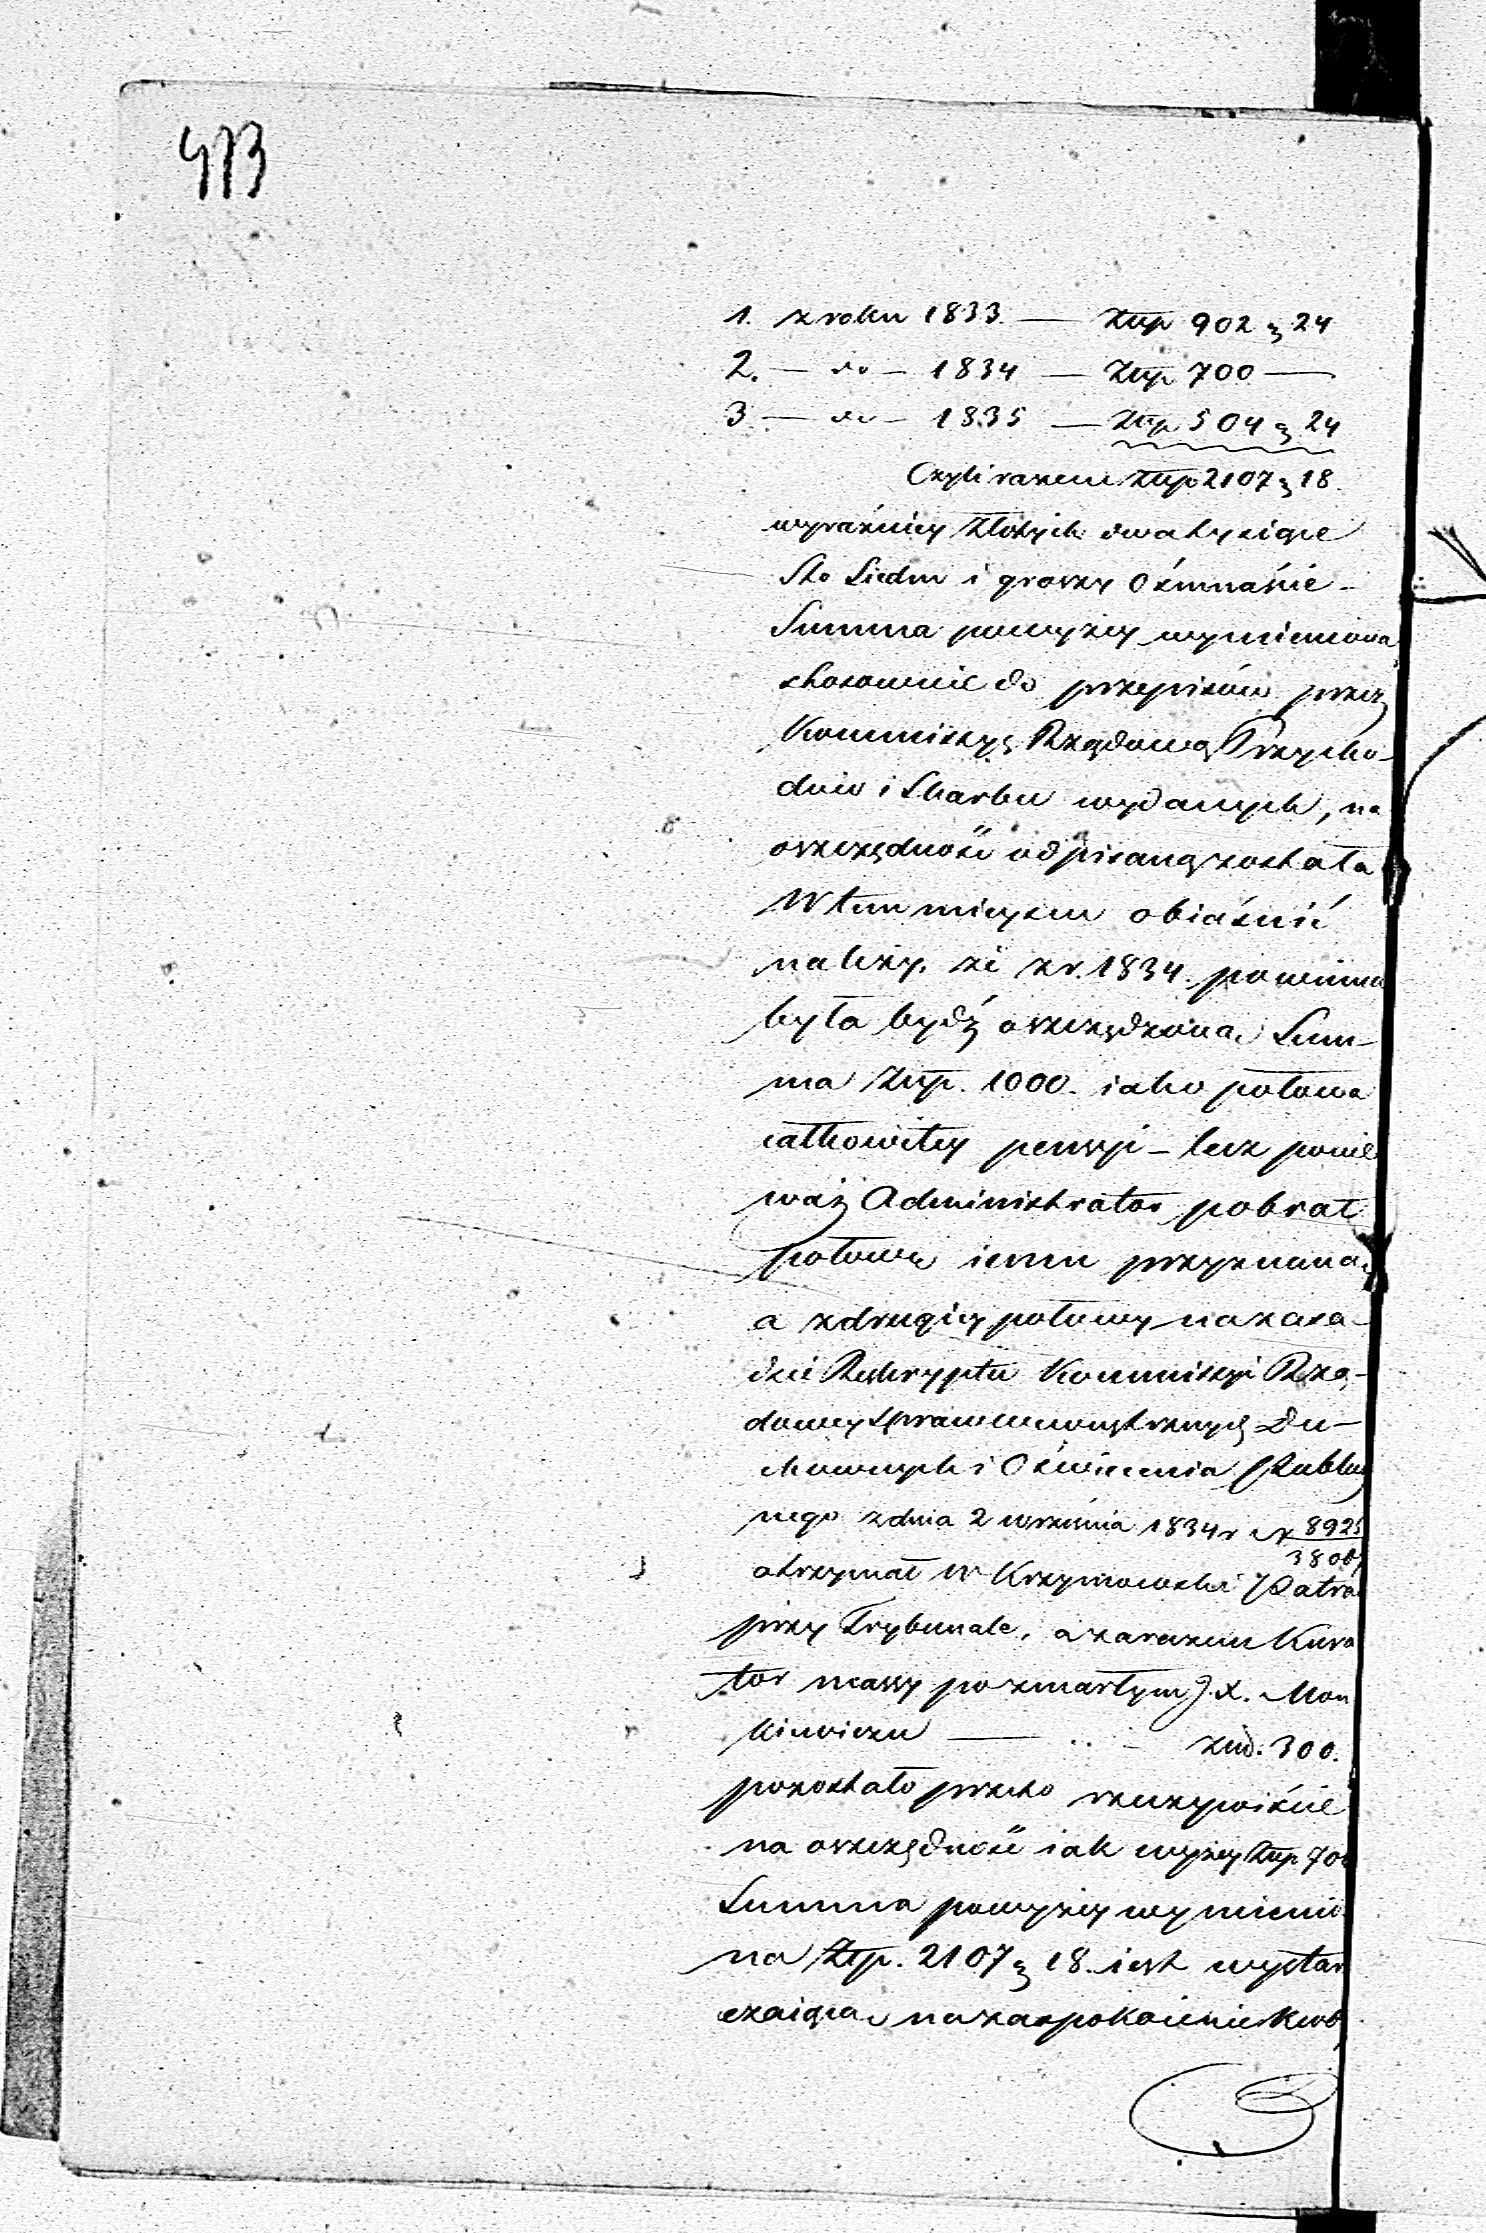 473
1. z roku 1833. — Złp 902 g 24
2. — do — 1834 — Złp 700 —
3 — do — 1835 — Złp 504 g 24
Czyli razem Złp 2107 g 18.
wyraźniey Złotych dwa tysiące
Sto Siedm i groszy Ośmnaście –
Summa powyżey wymieniona
stosownie do przepisów przez
Kommissyę Rządową Przycho-
dów i Skarbu wydanych, na
oszczędność odpisaną została
W tem mieyscu obiaśnić
należy, że z r. 1834. powinna
była bydź oszczędzona Sum-
ma Złp. 1000. iako połowa
całkowitey pensyi – lecz ponie
waż Administrator pobrał
połowę iemu przyznaną
a z drugiey połowy na zasa-
dzie Reskryptu Kommissyi Rzą-
dowey Spraw Wewnętrznych Du-
chownych i Oświecenia Public
nego z dnia 2 września 1834 r N 8925/3808
otrzymał W Krzymowski Patro
przy Trybunale, a zarazem Kura
tor massy po zmarłym J. X. Mon
kiewiczu — .. – złp. 300.
pozostało przeto rzeczywiście
na oszczędność iak wyżey Złp 700
Summa powyżey wymienio
na Złp. 2107 g 18. iest wystar
czaiąca na zaspokoienie kwot